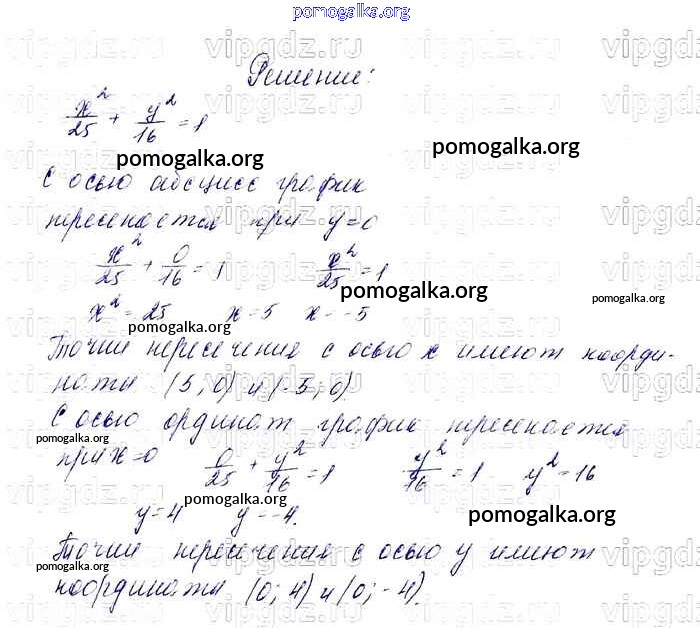 pomogalka.org
vipgdz.ru vipgdz.ru vipgdz.ru vipgdz
Решение:
x²/25 + y²/16 = 1
pomogalka.org pomogalka.org
С осью абсцисс график
пересекается при y=0
x²/25 + 0/16 = 1 x²/25 = 1
pomogalka.org
pomogalka.org
x² = 25 x = 5 x = -5
pomogalka.org
Точки пересечения с осью x имеют коорди-
наты (5; 0) и (-5; 0)
С осью ординат график пересекается
pomogalka.org
при x=0 0/25 + y²/16 = 1 y²/16 = 1 y² = 16
pomogalka.org
y=4 y=-4.
pomogalka.org
Точки пересечения с осью y имеют
pomogalka.org
координаты (0; 4) и (0; -4).